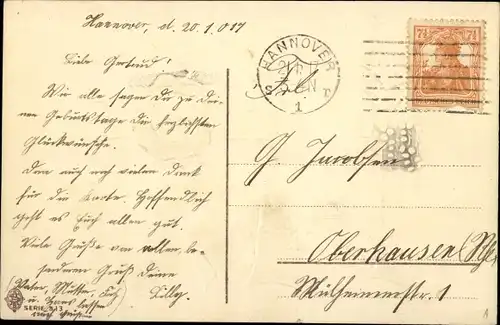 Hannover, d. 20.1.017
Liebe Gertrud!
Wir alle sagen dir zu dei-
nem Geburtstage die herzlichsten
Glückwünsche.
Dan auch noch vielen Dank
für die Karte. Hoffendlich
geht es Euch allen gut.
Viele Grüße von allen, be-
sonderen Gruß deine
Lilly.
(Vater, Mutter, Fritz
u. Hans lassen
SERIE 313
HANNOVER
1
7½ 7½
G Jacobsen
Oberhausen (Rhl.
Mülheimerstr. 1